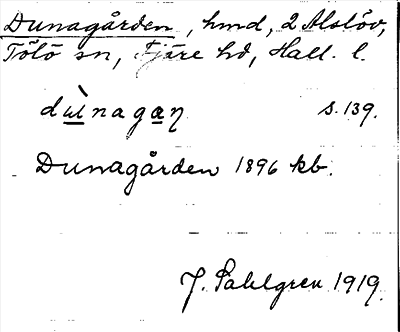 Dunagården, hmd, 2 Alslöv,
Tölö sn, Fjäre hd, Hall. l.
dùnagaη s. 139.
Dunagården 1896 kb.
J. Sahlgren 1919.